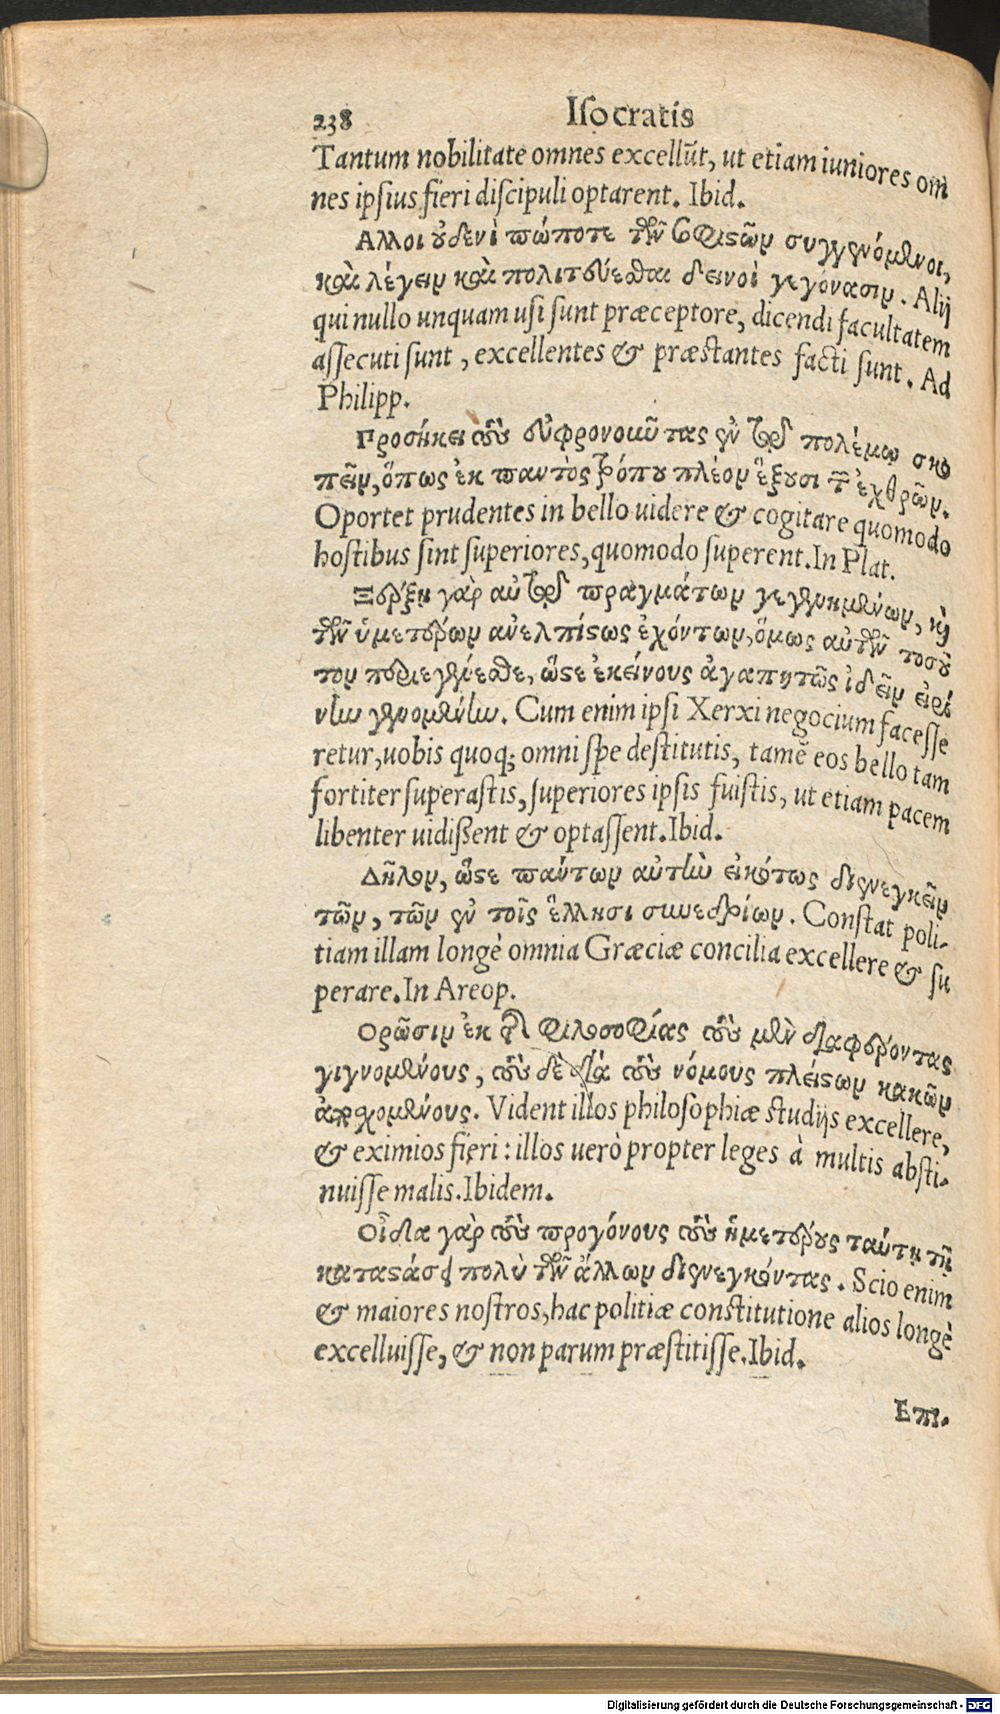 238 Iſocratis
Tantum nobilitate omnes excellũt, ut etiam iuniores om
nes ipſius fieri diſcipuli optarent. Ibid.
Αλλοι οὐδενὶ πώποτε τῶν σοφιστῶν συγγενόμενοι,
καὶ λέγειν καὶ πολιτεύεσθαι δεινοὶ γεγόνασιν. Alij
qui nullo unquam uſi ſunt præceptore, dicendi facultatem
aſſecuti ſunt, excellentes & præſtantes facti ſunt. Ad
Philipp.
Προσήκει τοὺς εὐφρονοῦντας ἐν τῷ πολέμῳ σκο
πεῖν, ὅπως ἐκ παντὸς τρόπου πλέον ἕξουσι τῶν ἐχθρῶν.
Oportet prudentes in bello uidere & cogitare quomodo
hoſtibus ſint ſuperiores, quomodo ſuperent. In Plat.
Ξέρξῃ γὰρ αὐτῷ πραγμάτων γεγενημένων, καὶ
τῶν ὑμετέρων ἀνελπίστως ἐχόντων, ὅμως αὐτῶν τοσοῦ
τον περιεγένεσθε, ὥστε ἐκείνους ἀγαπητῶς ἰδεῖν εἰρή
νην γενομένην. Cum enim ipſi Xerxi negocium faceſſe
retur, uobis quoq; omni ſpe deſtitutis, tamẽ eos bello tam
fortiter ſuperaſtis, ſuperiores ipſis fuiſtis, ut etiam pacem
libenter uidißent & optaſſent. Ibid.
Δῆλον, ὥστε πάντων αὐτὴν εἰκότως διενεγκεῖν
τῶν, τῶν ἐν τοῖς ἕλλησι συνεδρίων. Conſtat poli-
tiam illam longè omnia Græciæ concilia excellere & ſu
perare. In Areop.
Ορῶσιν ἐκ τῆς φιλοσοφίας τοὺς μὲν διαφέροντας
γιγνομένους, τοὺς δὲ διὰ τοὺς νόμους πλείστων κακῶν
ἀπεχομένους. Vident illos philoſophiæ ſtudijs excellere,
& eximios fieri: illos uerò propter leges à multis abſti-
nuiſſe malis. Ibidem.
Οἶδα γὰρ τοὺς προγόνους τοὺς ἡμετέρους ταύτῃ τῇ
καταστάσει πολὺ τῶν ἄλλων διενεγκόντας. Scio enim
& maiores noſtros, hac politiæ conſtitutione alios longè
excelluiſſe, & non parum præſtitiſſe. Ibid.
Επι-
Digitalisierung gefördert durch die Deutsche Forschungsgemeinschaft - DFG